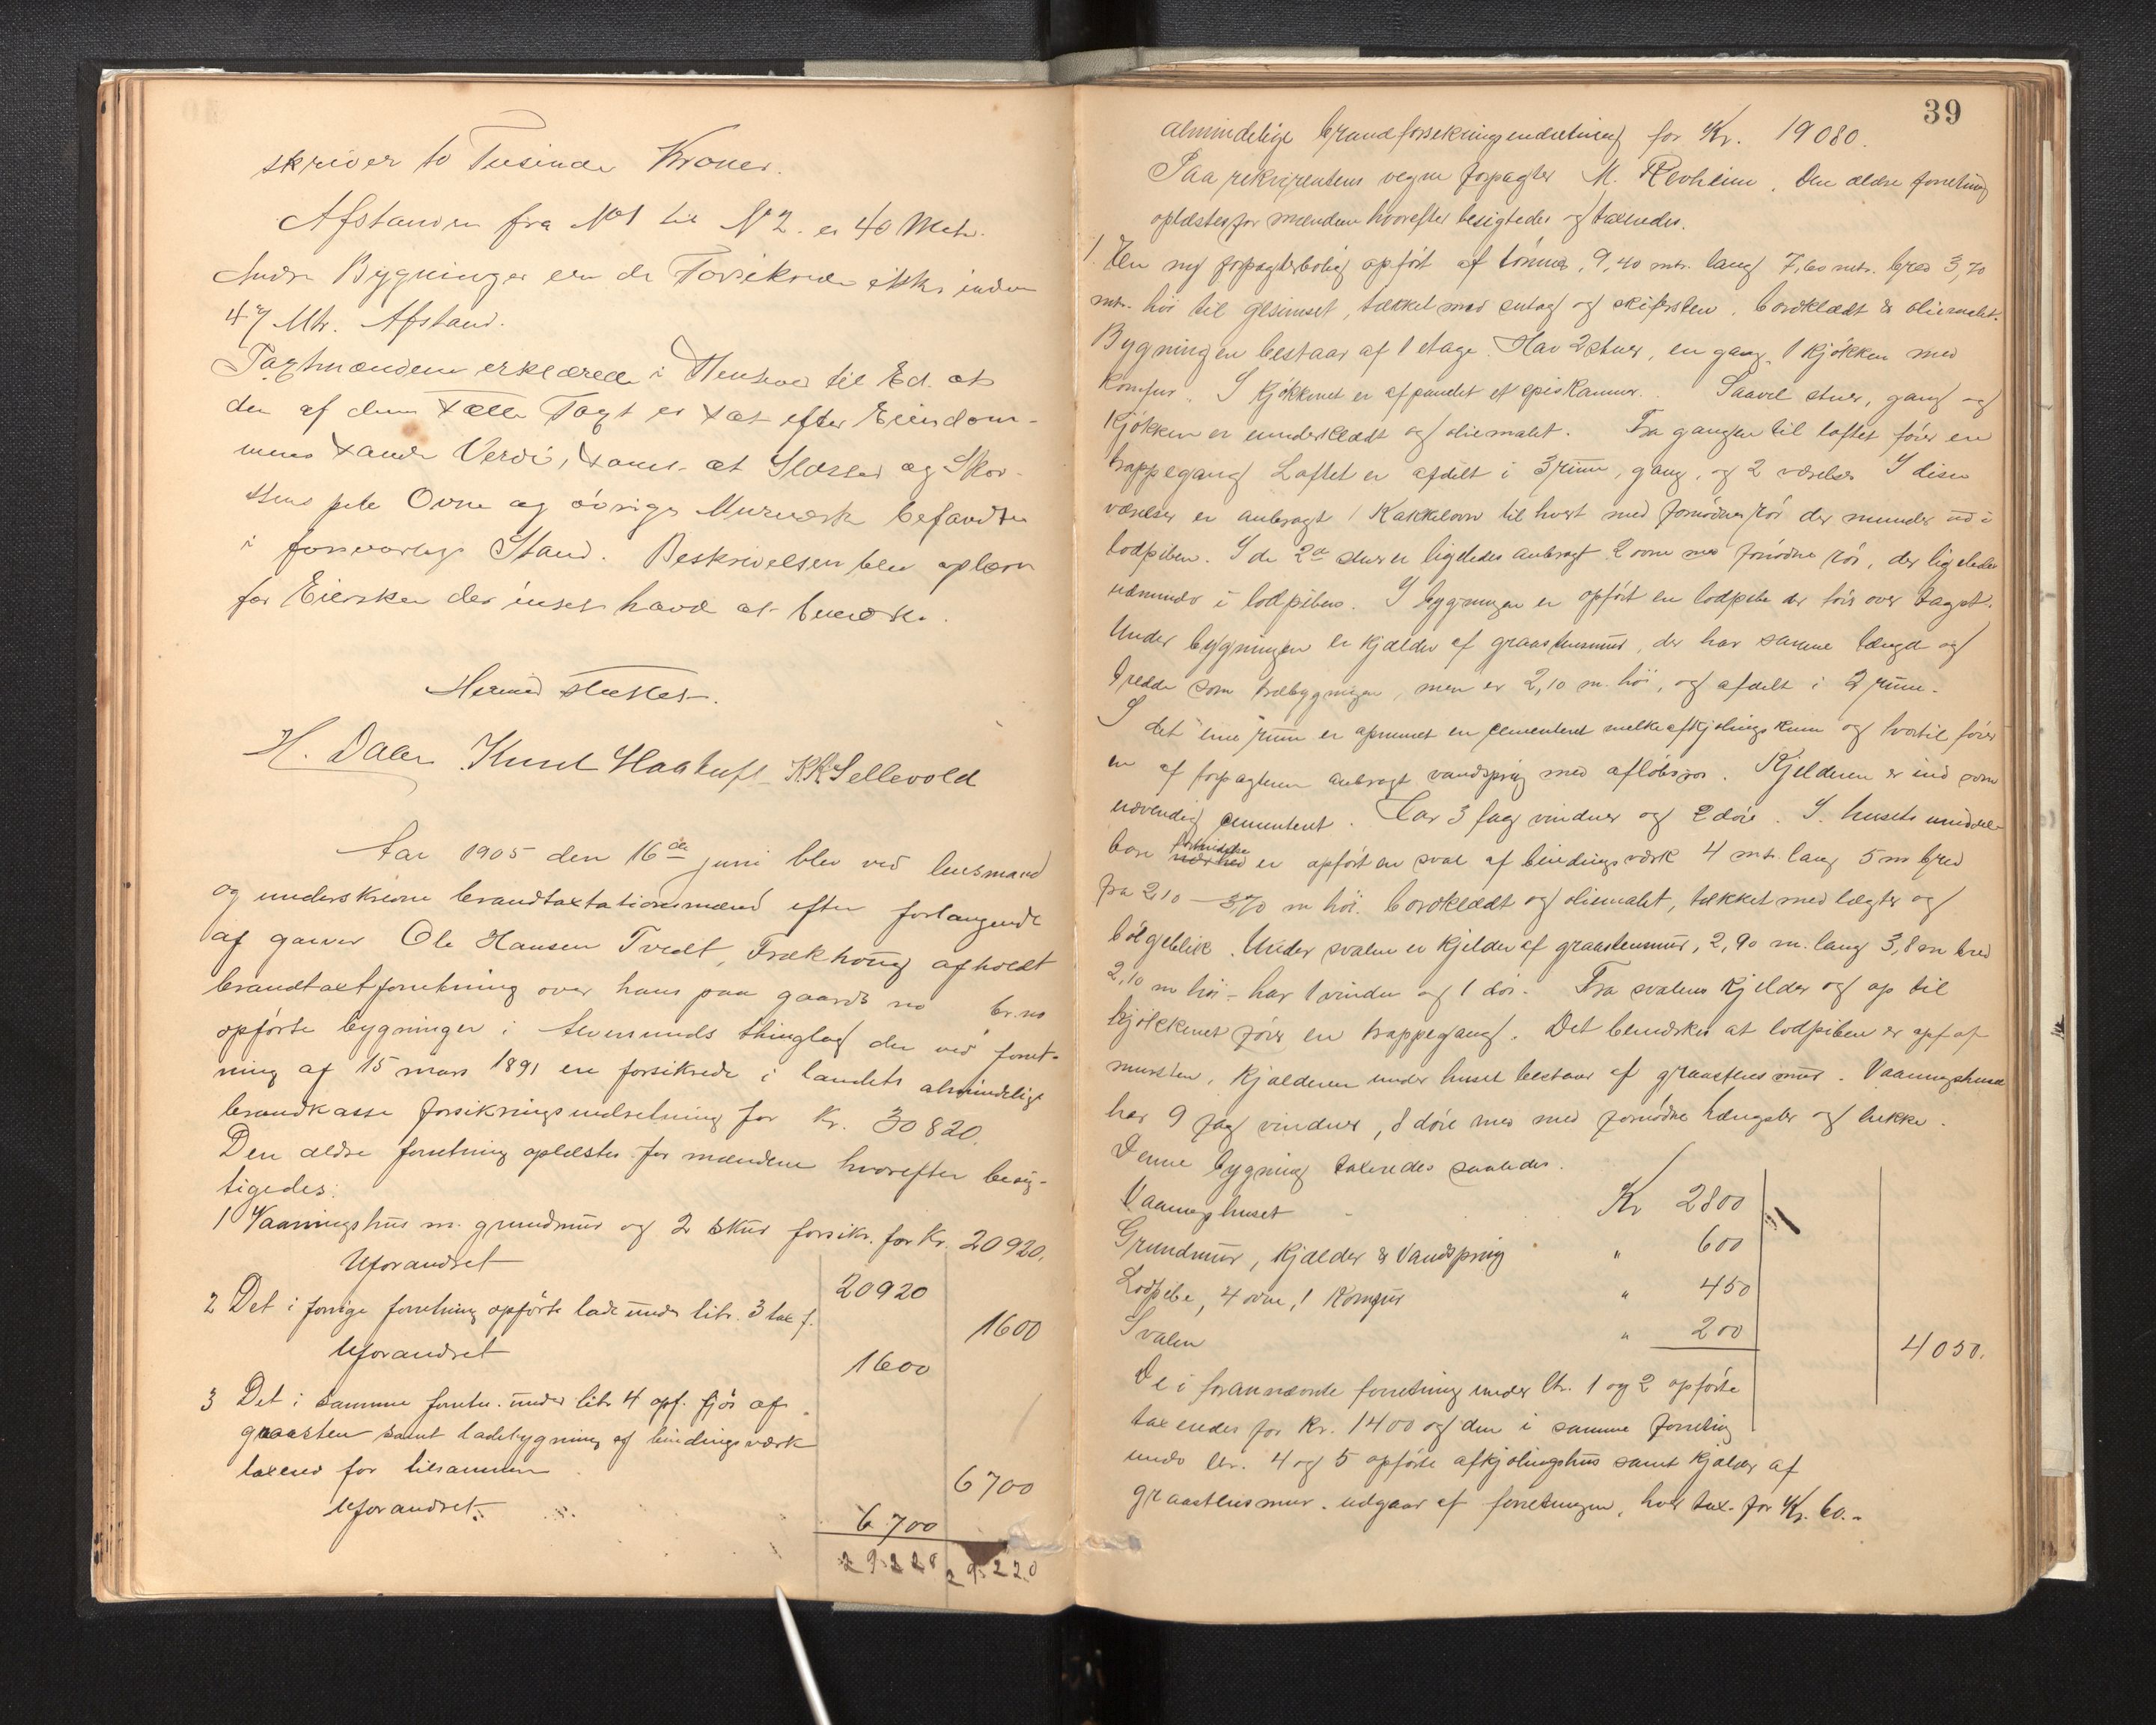 skriver to Tusinde Kroner.
Afstanden fra No 1 til No 2. er 40 Metr.
Andre Bygninger en de Forsikrede ikke inden
47 Mtr. Afstand.
Taxtmændene erklærede i Henhold til Ed. at
den af dem satte Taxt er sat efter Eiendom-
mens sande Verdi, samt at Ildsted og Skor-
stens pibe Ovne og øvrige Murverk befandtes
i forsvarlig Stand. Beskrivelsen blev oplæst
for Eiersken der intet havde at bemerke.
Hermed sluttet.
H. Dalen Knut Haakuft K.K. Sellevold
Aar 1905 den 16de juni blev ved lensmand
og underskrevne brandtaxtationsmænd efter forlangende
af garver Ole Hansen Tvedt, Trækhoug afholdt
brandtaxtforretning over hans paa gaards no br. no
opførte bygninger i Avenunds thinglag der ved forret-
ning af 15 mars 1891 ere forsikrede i landets almindelige
brandkasse forsikringsindretning for kr. 30820.
Den ældre forretning oplæstes for mændene hvorefter besig-
tigedes:
1 Vaaningshus m. grundmur og 2 skur forsikr. for Kr. 20920.
Uforandret 20920
2 Det i forrige forretning opførte lade under litr. 3 tax f. 1600
Uforandret 1600
3 Det i samme forretn. under litr 4 opf. fjøs af
graasten samt ladebygning af bindingsværk
taxeret for tilsammen 6700
Uforandret. 6700
29220 29220
39
almindelige brandforsikringsindretning for Kr. 19080.
Paa rekvirentens vegne forpagter M. Revheim. Den ældre forretning
oplæstes for mændene hvorefter besigtedes og taxeredes.
1. En ny forpagterbolig opført af tømmer, 9,40 mtr. lang 7,60 mtr. bred 3,70
mtr. høi til gesimset, tækket med sutag og skifersten, bordklædt & oliemalt.
Bygningen bestaar af 1 etage. Har 2 stuer, en gang, 1 kjøkken med
komfur. I kjøkkenet er afpanelet et spiskammer. Saavel stuer, gang og
kjøkken er underklædt og oliemalet. Fra gangen til loftet fører en
trappegang Loftet er afdelt i 3 rum, gang, og 2 værelser I disse
værelser er anbragt 1 Kakkelovn til hvert med fornødne rør der munder ud i
lodpiben. I de 2de stuer er ligeledes anbragt 2 ovne med fornødne rør, der ligeledes
udmunder i lodpiben. I bygningen er opført en lodpibe der fører over taget.
Under bygningen er kjælder af graastensmur, der har samme længde og
bredde som træbygningen, men er 2,10 m. høi, og afdelt i 2 rum.
I det ene rum er afmuret en cementeret melkeafkjølings kum og hvortil fører
en af forpagteren anbragt vandspring med afløbsrør. Kjelderen er ind som
udvendig cementeret. Har 3 fag vinduer og 2 døre. I husets umiddel-
bare nærhed er opført en sval af bindingsværk 4 mtr. lang 5 m bred
fra 2,10 - 3,70 m høi. bordklædt og oliemalet, tækket med lægter og
bølgeblik. Under svalen er kjelder af graastensmur, 2,90 m. lang 3,8 m bred
2,10 m høi - har 1 vindu og 1 dør. Fra svalens kjelder og op til
kjøkkenet fører en trappegang. Det bemærkes at lodpiben er opf af
mursten, kjælderen under huset bestaar af graastens mur. Vaaningshuset
har 9 fag vinduer, 8 døre med med fornødne hængsler og lukke.
Denne bygning taxeredes saaledes.
Vaaningshuset Kr 2800
Grundmur, kjælder & Vandspring " 600
Lodpibe, 4 ovne, 1 Komfur " 450
Svalen " 200 4050.
De i forannævnte forretning under ltr. 1 og 2 opførte
taxeredes for Kr. 1400 og den i samme forretning
under ltr. 4 og 5 opførte afkjølingshus samt kjælder af
graastensmur. udgaar af forretningen, hver tax. for Kr. 60.-